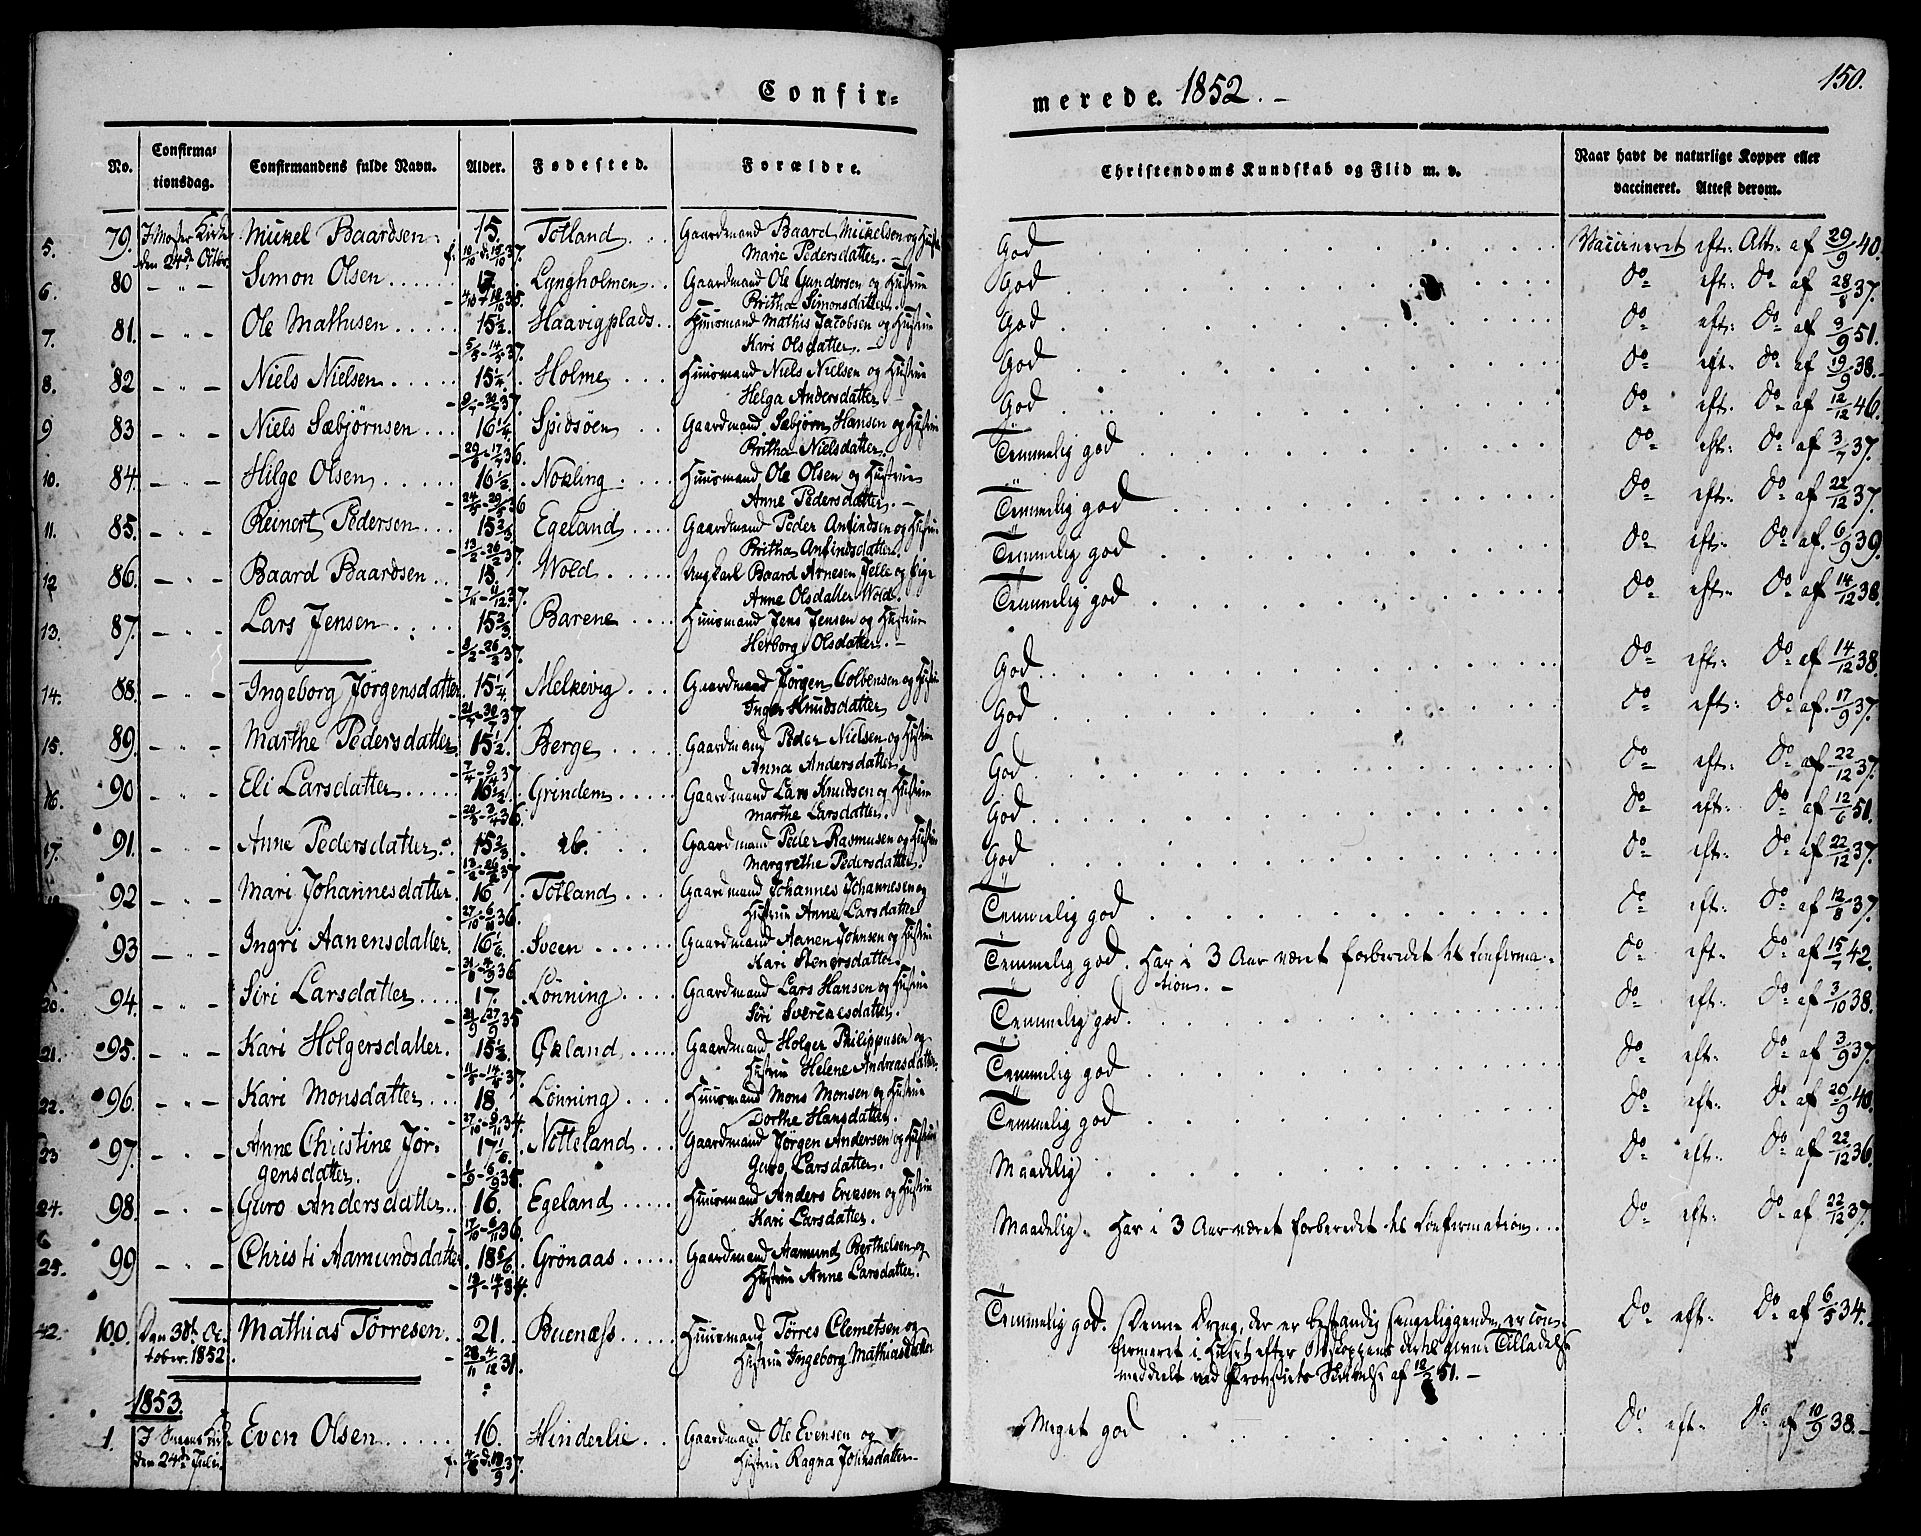 Confir-
merede. 1852. -
150.
No.
Confirma-
tionsdag.
Confirmandens fulde Navn.
Alder.
Fødested.
Forældre.
Christendoms Kundskab og Flid m. v.
Naar havt de naturlige Kopper eller
vaccineret. Attest derom.
5. 79. I Moster Kirke Mickel Baardsen. 15. Totland. Gaardmand Baard Mickelsen og Hustru God Vaccineret eft: Att: af 29/9 40.
den 24de Octbr. Marie Pedersdatter. -
6. 80 - " - Simon Olsen 17. Lyngholmen Gaardmand Ole Gundersen og Hustru God do eft: do af 28/8 37.
Britha Simonsdatter.
7. 81. - " - Ole Mathisen 15½. Haavigplads Huusmand Mathis Jacobsen og Hustru God do eft: do af 3/9 51.
Kari Olsdatter. -
8. 82 - " - Niels Nielsen 15¼. Holme Huusmand Niels Nielsen og Hustru God do eft: do af 19/9 38.
Helga Andersdatter
9 83 - " - Niels Sæbjørnsen 16¼. Spidsøen Gaardmand Sæbjørn Hansen og Hustru God do eft: do af 12/12 46.
Britha Nielsdatter.
10. 84. - " - Hilge Olsen 16½. Nokling Huusmand Ole Olsen og Hustru Temmelig god do eft: do af 3/7 37.
Anne Pedersdatter. -
11. 85. - " - Reinert Pedersen 15⅔. Egeland Gaardmand Peder Anfindsen og Hustru Temmelig god do eft: do af 22/12 37.
Britha Anfindsdatter.
12 86. - " - Baard Baardsen 15. Wold Ungkarl Baard Arnesen Jelle og Pige Temmelig god do eft: do af 6/9 39.
Anne Olsdatter Wold.
13. 87. - " - Lars Jensen 15⅔. Barene Huusmand Jens Jensen og Hustru Temmelig god do eft: do af 14/12 38.
Herborg Olsdatter. -
14. 88. - " - Ingeborg Jørgensdatter 15¼. Melkevig Gaardmand Jørgen Colbensen og Hustru God do eft: do af 14/12 38.
Inger Knudsdatter
15. 89. - " - Marthe Pedersdatter 15½. Berge Gaardmand Peder Nielsen og Hustru God do eft: do af 17/9 37.
Anna Andersdatter
16. 90 - " - Eli Larsdatter 16½. Grindem Gaardmand Lars Knudsen og Hustru God do eft: do af 22/12 37.
Marthe Larsdatter.
17. 91. - " - Anne Pedersdatter. 15⅔. ib. Gaardmand Peder Rasmusen og Hustru God do eft: do af 12/6 51.
Margrethe Pedersdatter.
92 - " - Mari Johannesdatter 16 Totland Gaardmand Johannes Johannesen og God do eft: do af 22/12 37.
Hustru Anne Larsdatter
93 - " - Ingri Aanensdatter 16⅙. Sveen Gaardmand Aanen Johnsen og Hustru Temmelig god do eft: do af 12/8 37.
Kari Stenersdatter.
20. 94. - " - Siri Larsdatter 17. Lønning Gaardmand Lars Hansen og Hustru Temmelig god. Har i 3 Aar været forberedet til Confirma- do eft: do af 15/7 42.
Siri tion. -
21. 95. - " - Kari Holgersdatter. 15⅓. Økland Gaardmand Holger Philippusen og Temmelig god. do eft: do af 3/10 38.
Hustru Helene Andreasdatter.
22. 96. - " - Kari Monsdatter 18 Lønning Huusmand Mons Monsen og Hustru Temmelig god do eft: do af 3/9 37.
Dorthe Hansdatter.
23 97. - " - Anne Christine Jør- 17⅙. Notteland Gaardmand Jørgen Andersen og Hustru Temmelig god do eft: do af 29/9 40.
gensdatter. Guro Larsdatter.
24. 98. - " - Guro Andersdatter 16. Egeland Huusmand Anders Eriksen og Hustru Maadelig do eft: do af 22/12 36.
Kari Larsdatter.
25. 99 - " - Christi Aamundsdatter 18⅚. Grønaas Gaardmand Aamund Berthelsen og Maadelig. Har i 3 Aar været forberedet til Confirmation. do eft: do af 22/12 37.
Hustru Anne Larsdatter.
42. 100. Den 30te Oc- Mathias Tørresen 21. Buenæss Huusmand Tørres Clemetsen og Temmelig god. (Denne Dreng, der er bestandig sengeliggende, er con- do eft: do af 6/5 34.
tober. 1852. 28/11 - 4/12 31. Hustru Ingeborg Mathiasdatter firmeret i Huset efter Biskoppens dertil givne Tilladelse
meddeelt ved Provstiets Skrivelse af 51. -
1853.
1. I Sveens Kirke Even Olsen 16. Hinderlie Gaardmand Ole Evensen og Meget god do eft: do af 10/9 38.
den 24de Juli. Hustru Ragna Johnsdatter